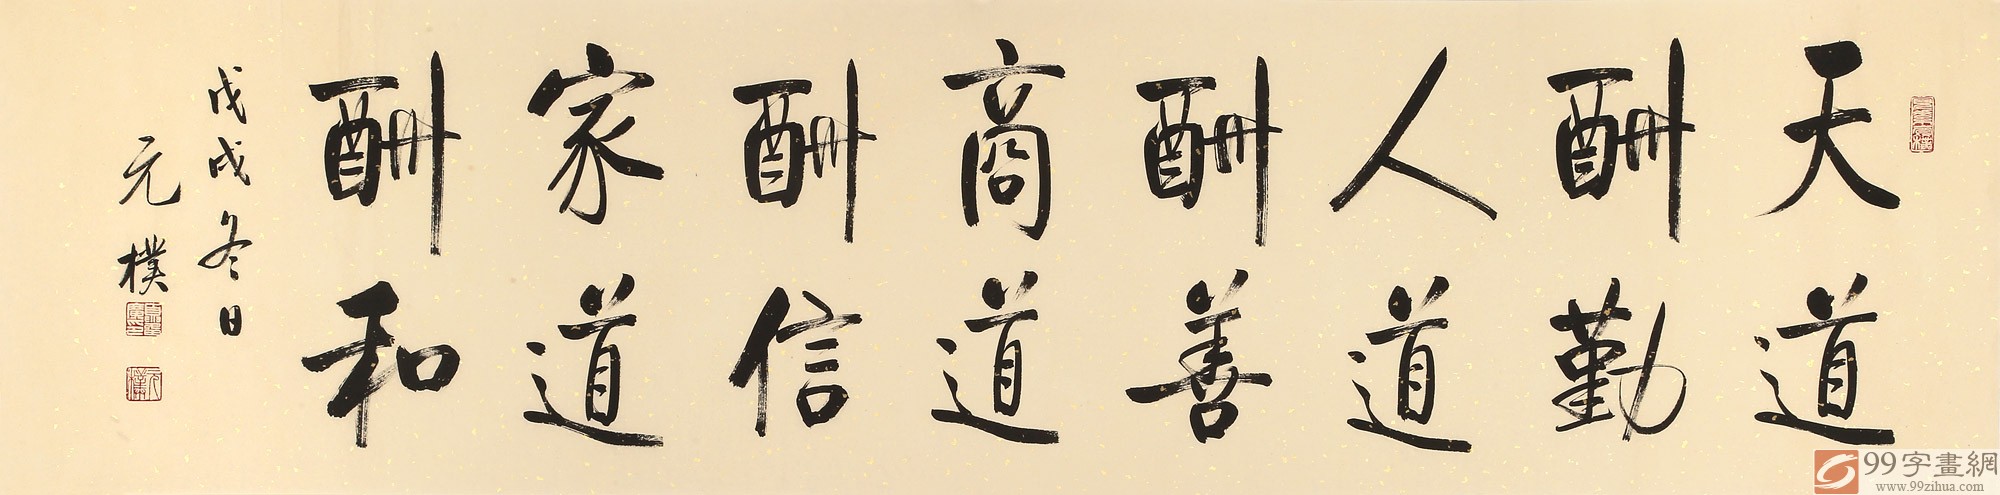 天道
酬勤
人道
酬善
商道
酬信
家道
酬和
戊戌冬日
元樸
99字畫網
www.99zihua.com